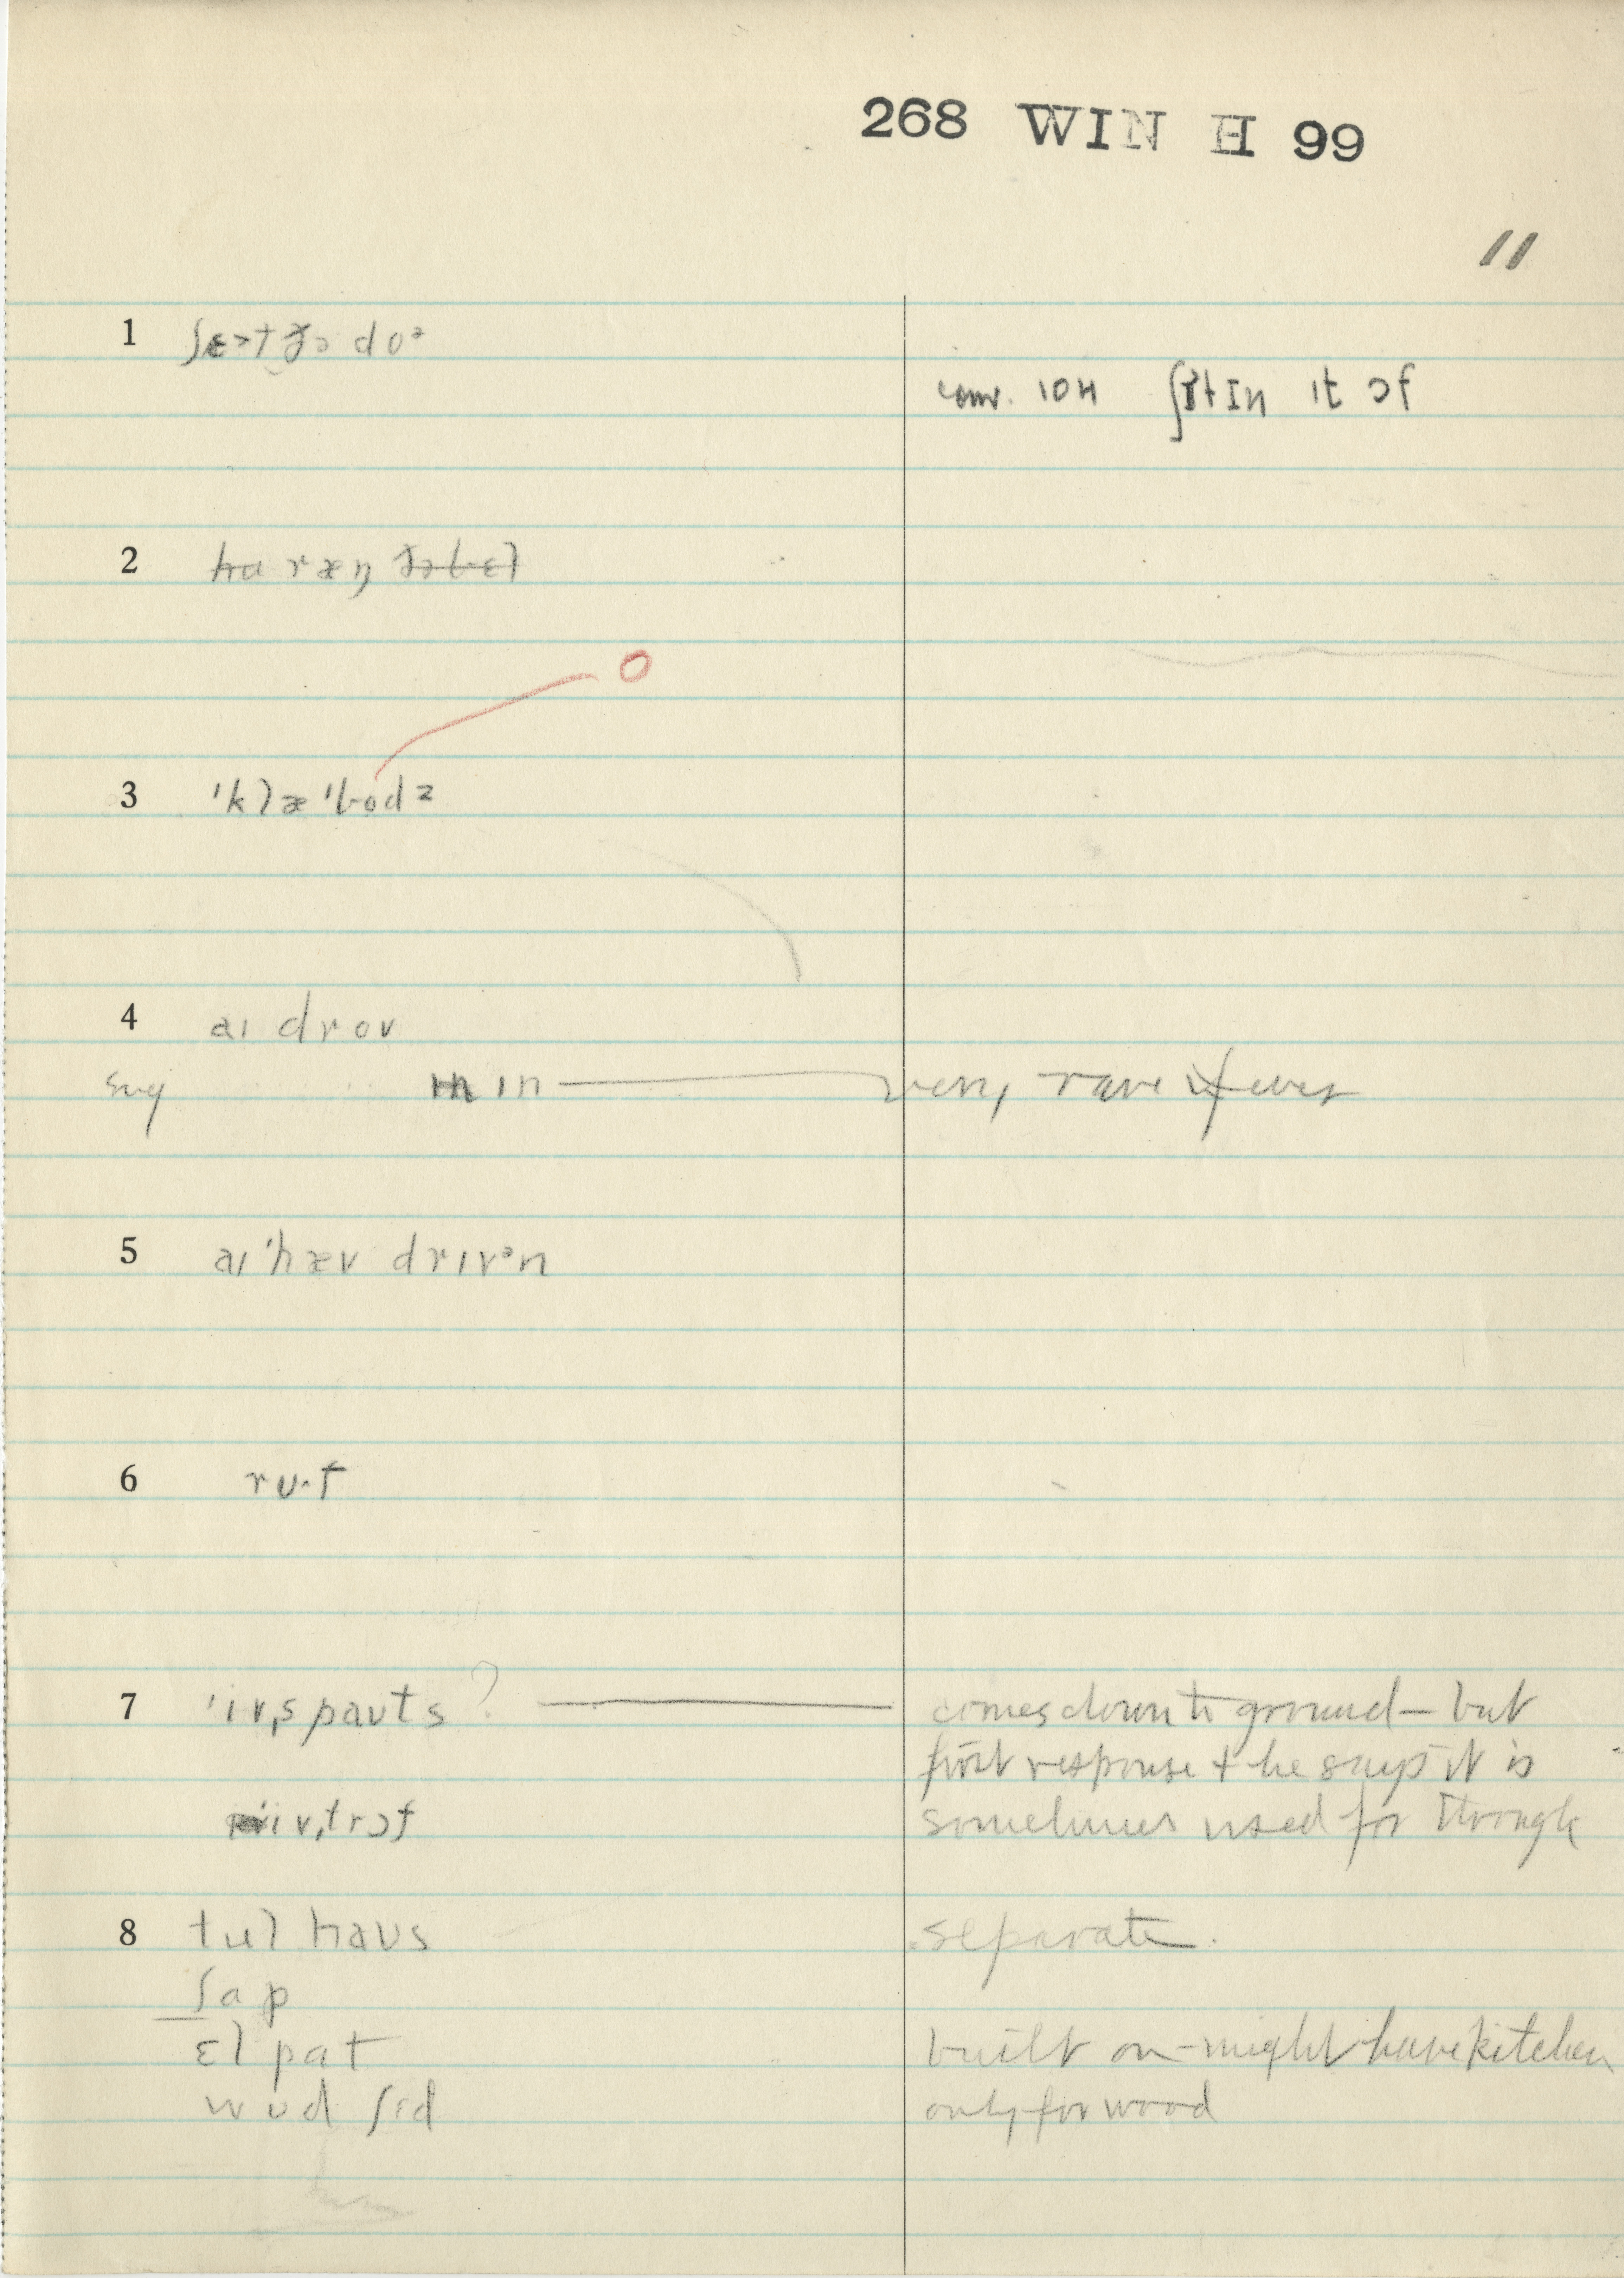 268 WIN H 99
11
1 do
conv. 10H ʃɪtɪn ɪt ɔf
2 ræŋ
O
3 'klæ'bodz
4 aɪ drov
sug ɪn very rare if ever
5 aɪ 'hæv drɪvᵊn
6 ru·f
7 'iv,spauts ? comes down to ground — but
first response + he says it is
iv,trɔf sometimes used for through
8 tul haus separate.
ʃap
ɛl pat built on - might have kitchen
wud ʃɛd only for wood